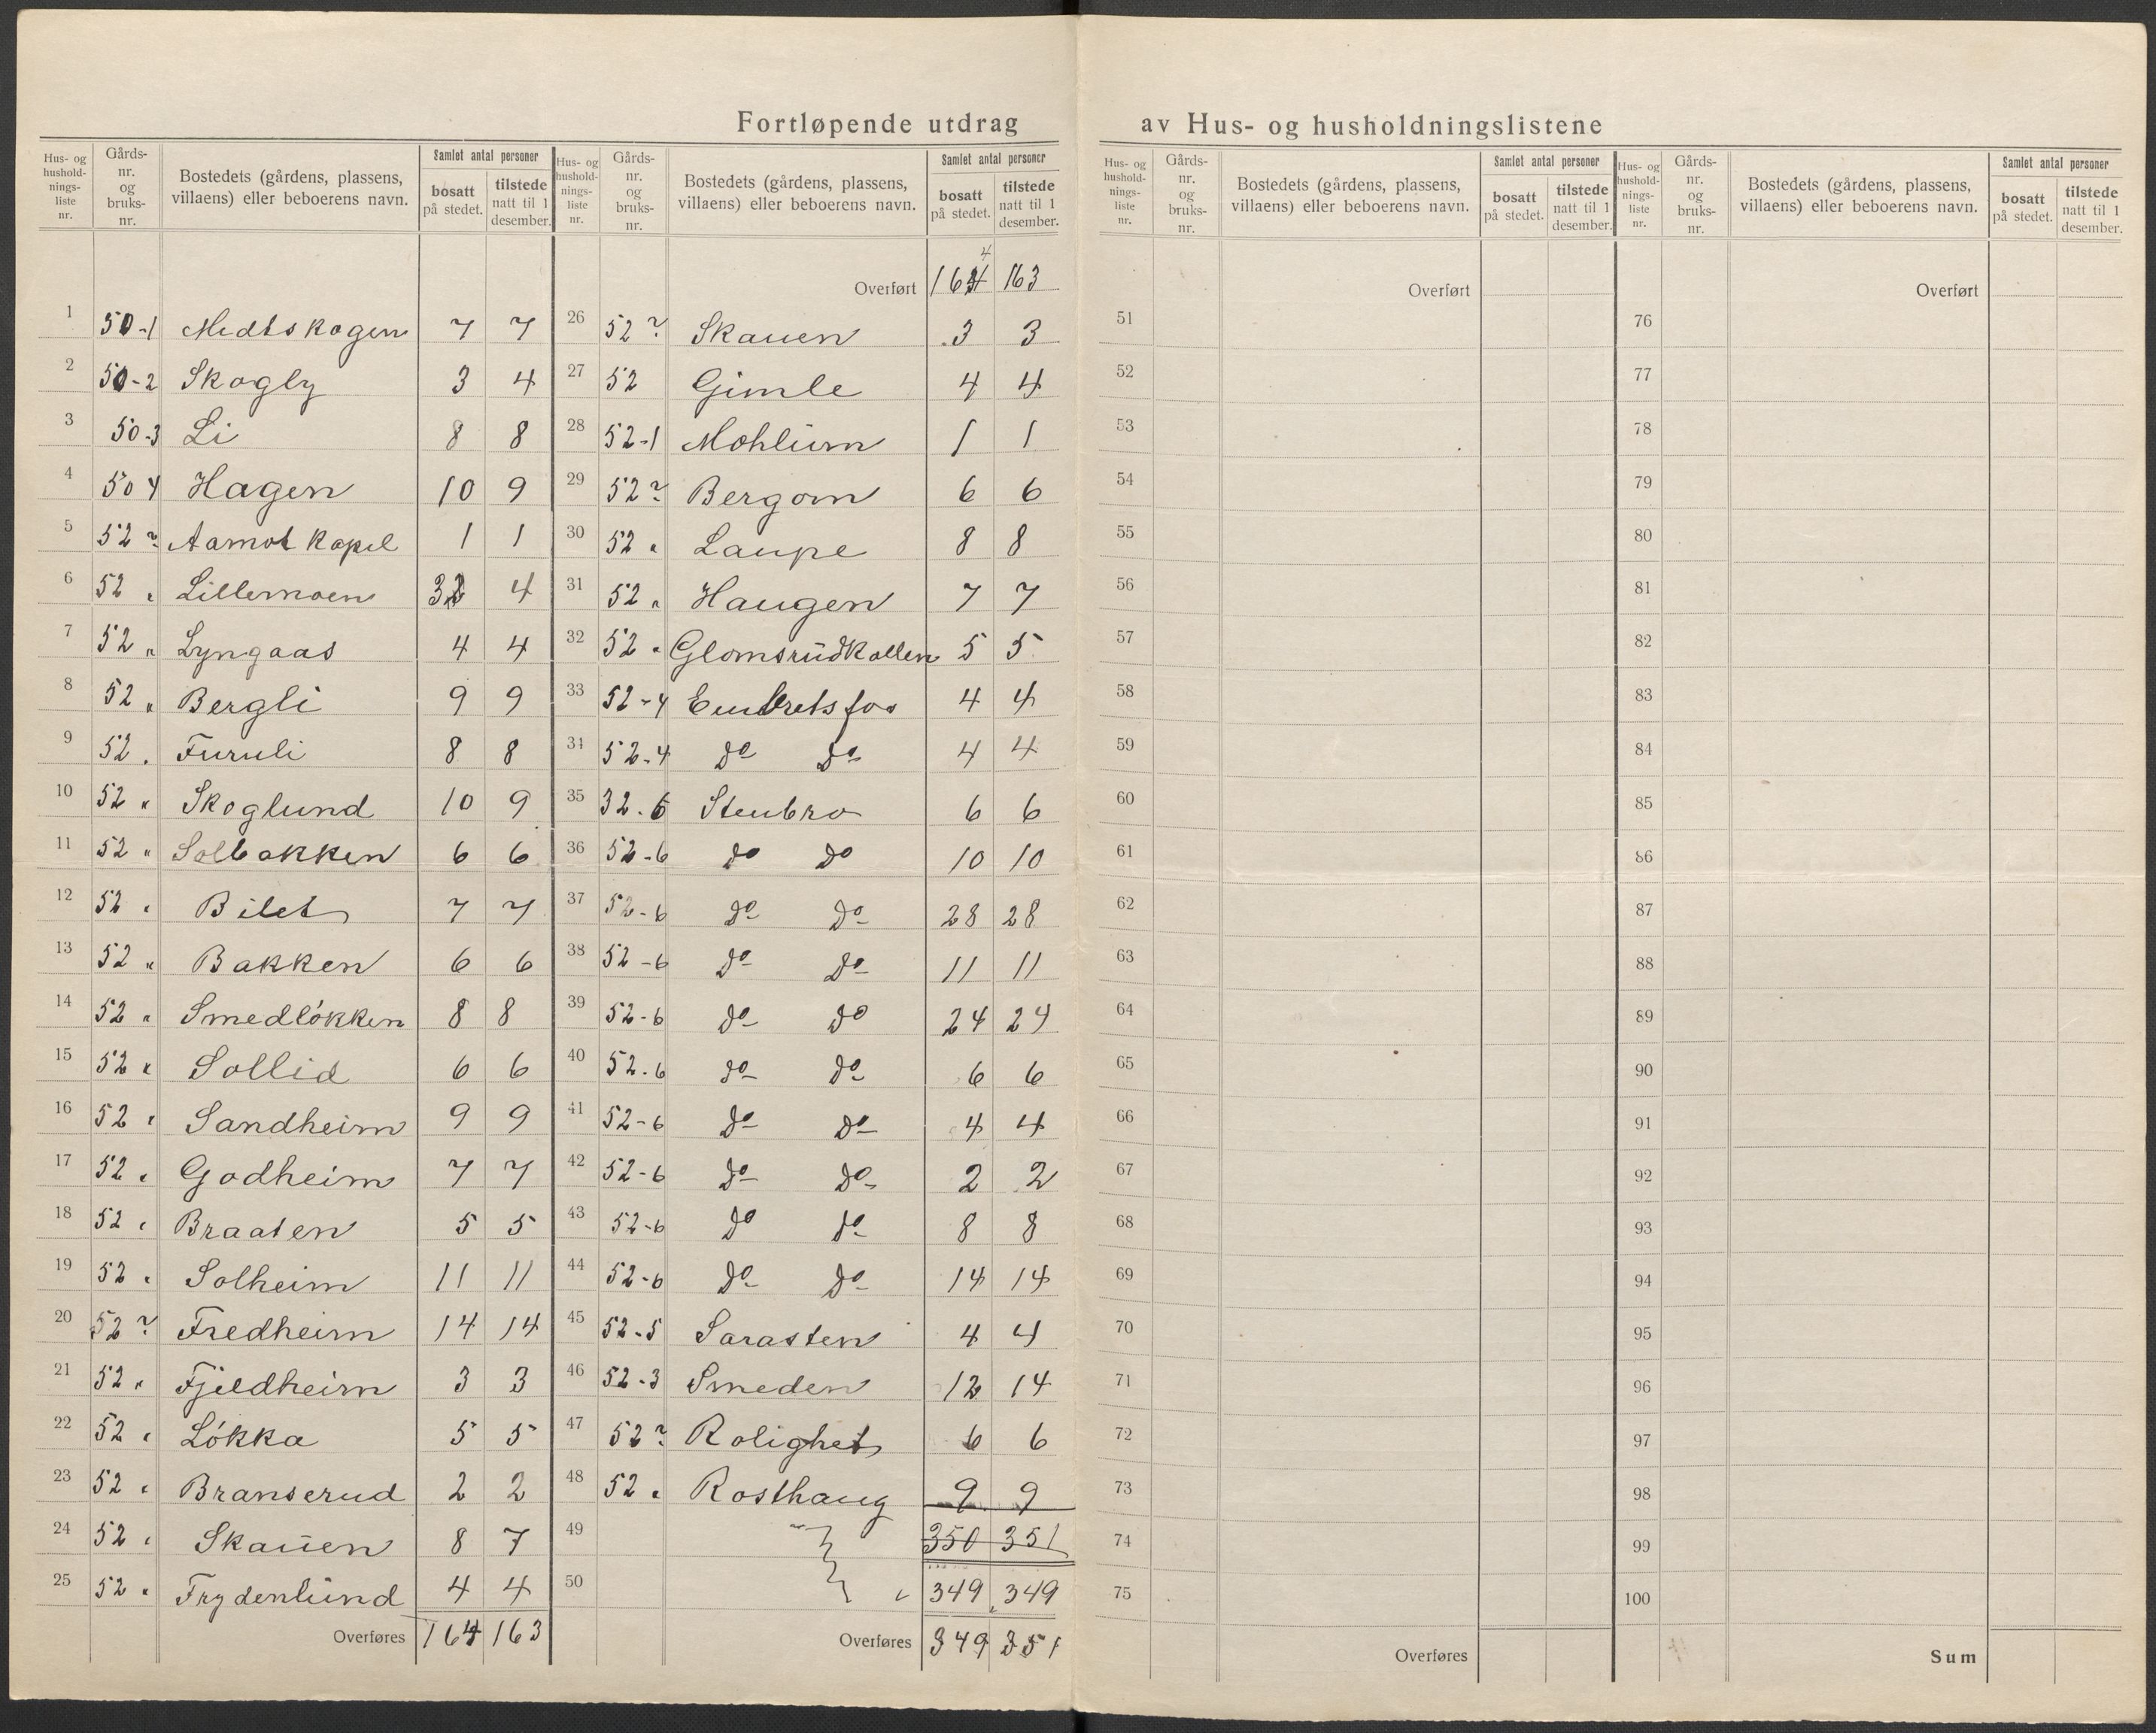 Fortløpende utdrag av Hus- og husholdningslistene
Hus- og husholdningsliste nr. | Gårds-nr. og bruks-nr. | Bostedets (gårdens, plassens, villaens) eller beboerens navn. | Samlet antal personer | bosatt på stedet. | tilstede natt til 1 desember.
1 50-1 Medtskogen 7 7
2 50-2 Skogly 3 4
3 50-3 Li 8 8
4 50 4 Hagen 10 9
5 52 ? Aamot Kapel 1 1
6 52 " Lillemoen 3 4
7 52 " Lyngaas 4 4
8 52 " Bergli 9 9
9 52 " Furuli 8 8
10 52 " Skoglund 10 9
11 52 " Solbakken 6 6
12 52 " Bilet 7 7
13 52 " Bakken 6 6
14 52 " Smedløkken 8 8
15 52 " Sollid 6 6
16 52 " Sandheim 9 9
17 52 " Godheim 7 7
18 52 " Braaten 5 5
19 52 " Solheim 11 11
20 52 ? Fredheim 14 14
21 52 " Fjeldheim 3 3
22 52 " Løkka 5 5
23 52 " Branserud 2 2
24 52 " Skauen 8 7
25 52 " Frydenlund 4 4
Overføres 164 163
Hus- og husholdningsliste nr. | Gårds-nr. og bruks-nr. | Bostedets (gårdens, plassens, villaens) eller beboerens navn. | Samlet antal personer | bosatt på stedet. | tilstede natt til 1 desember.
Overført 164 163
26 52 ? Skauen 3 3
27 52 Gimle 4 4
28 52-1 Mohlum 1 1
29 52 ? Bergom 6 6
30 52 " Laupe 8 8
31 52 " Haugen 7 7
32 52 " Glomsrudkollen 5 5
33 52-4 Embretsfos 4 4
34 52-4 do do 4 4
35 32-6 Stenbro 6 6
36 52-6 do do 10 10
37 52-6 do do 28 28
38 52-6 do do 11 11
39 52-6 do do 24 24
40 52-6 do do 6 6
41 52-6 do do 4 4
42 52-6 do do 2 2
43 52-6 do do 8 8
44 52-6 do do 14 14
45 52-5 Sarasten 4 4
46 52-3 Smeden 12 14
47 52 ? Rolighet 6 6
48 52 " Rosthaug 9 9
49 350 351
50 349 349
Overføres 349 351
Hus- og husholdningsliste nr. | Gårds-nr. og bruks-nr. | Bostedets (gårdens, plassens, villaens) eller beboerens navn. | Samlet antal personer | bosatt på stedet. | tilstede natt til 1 desember.
Overført
51
52
53
54
55
56
57
58
59
60
61
62
63
64
65
66
67
68
69
70
71
72
73
74
75
Overføres
Hus- og husholdningsliste nr. | Gårds-nr. og bruks-nr. | Bostedets (gårdens, plassens, villaens) eller beboerens navn. | Samlet antal personer | bosatt på stedet. | tilstede natt til 1 desember.
Overført
76
77
78
79
80
81
82
83
84
85
86
87
88
89
90
91
92
93
94
95
96
97
98
99
100
Sum